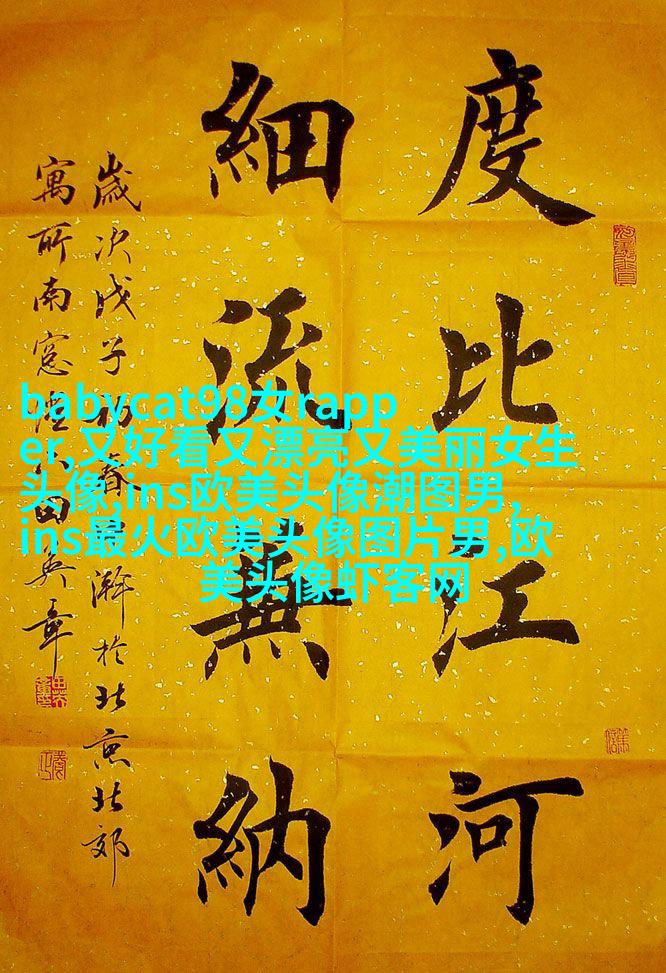 度比江河
細流無納
歲次戊子初春澣於北京北郊
寓所南窓田英章
babycat98女rapp
er,又好看又漂亮又美丽女生
头像,ins欧美头像潮图男,
ins最火欧美头像图片男,欧
美头像虾客网